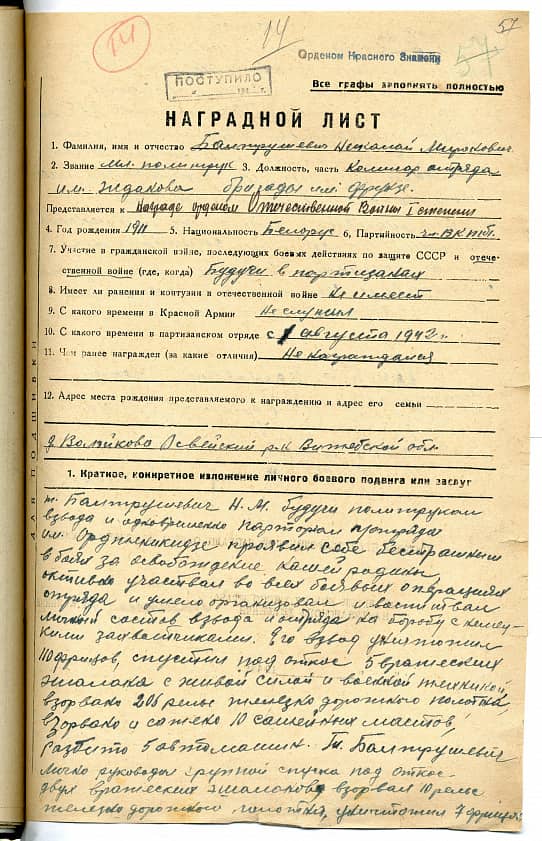 57
ТЧ
14
Орденом Красного Знамени
57
ПОСТУПИЛО
194 г.
Все графы заполнять полностью
НАГРАДНОЙ ЛИСТ
1. Фамилия, имя и отчество Балтрушевич Николай Миронович
2. Звание мл. политрук 3. Должность, часть Комиссар отряда
им. Жданова бригады им. Фрунзе.
Представляется к Награде орденом Отечественной Войны I степени
4. Год рождения 1911 5. Национальность Белорус 6, Партийность чл. ВКПб.
7. Участие в гражданской войне, последующих боевых действиях по защите СССР и отече-
ственной войне (где, когда) Будучи в партизанах
8. Имеет ли ранения и контузии в отечественной войне Не имеет
9. С какого времени в Красной Армии Не служил
10. С какого времени в партизанском отряде с 1 августа 1942 г.
11. Чем ранее награжден (за какие отличия) Не награждался
12. Адрес места рождения представляемого к награждению и адрес его семьи
д. Освейский р-н Витебской обл.
ДЛЯ ПОДШИВКИ
1. Краткое, конкретное изложение личного боевого подвига или заслуг
т. Балтрушевич Н. М. будучи политруком
взвода и одновременно парторгом отряда
им. Орджоникидзе проявил себя бесстрашным
в боях за освобождение нашей родины,
активно участвовал во всех боевых операциях
отряда и умело организовал и воспитывал
личный состав взвода и отряда на борьбу с немец-
кими захватчиками. Его взвод уничтожил
110 фрицов, спустил под откос 5 вражеских
эшалона с живой силой и военной техникой,
взорвано 206 рельс железно дорожного полотна,
взорвано и сожжено 10 мостов,
разбито 5 автомашин. Т. Балтрушевич
лично руководил группой спуска под откос
двух вражеских эшалонов взорвал 10 рельс
железно дорожного полотна, уничтожил 7 фрицов